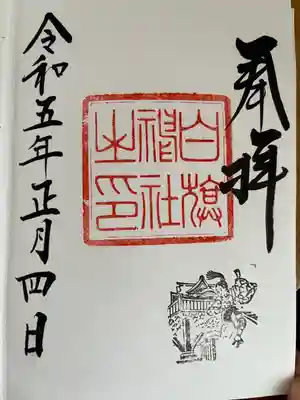 奉拝
白旗神社之印
令和五年正月四日